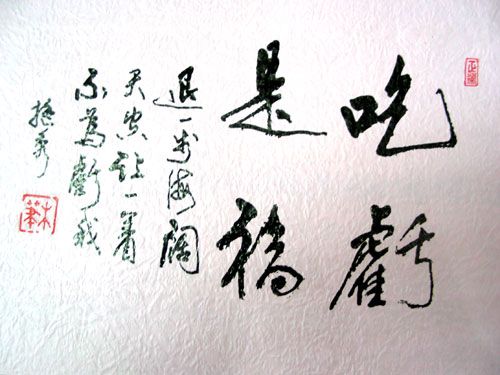 吃虧
是福
退一步海闊
天空讓一着
不為虧